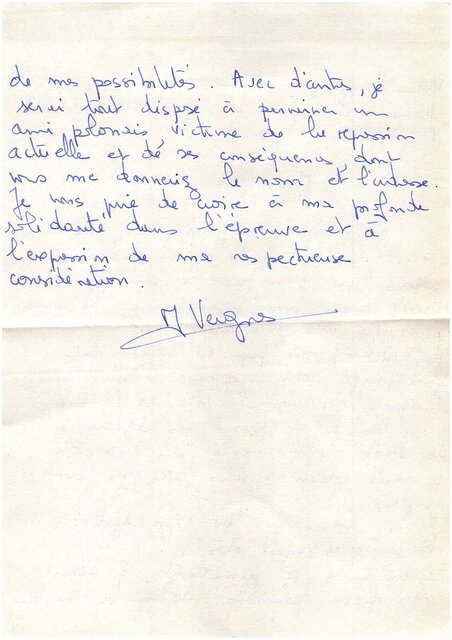 de mes possibilités. Avec d'autres, je
serai tout disposé à parrainer un
ami polonais victime de la repression
actuelle et de ses conséquences, dont
vous me donneriez le nom et l'adresse.
Je vous prie de croire à ma profonde
solidarité dans l'épreuve et à
l'expression de ma respectueuse
considération.
M Vergnes